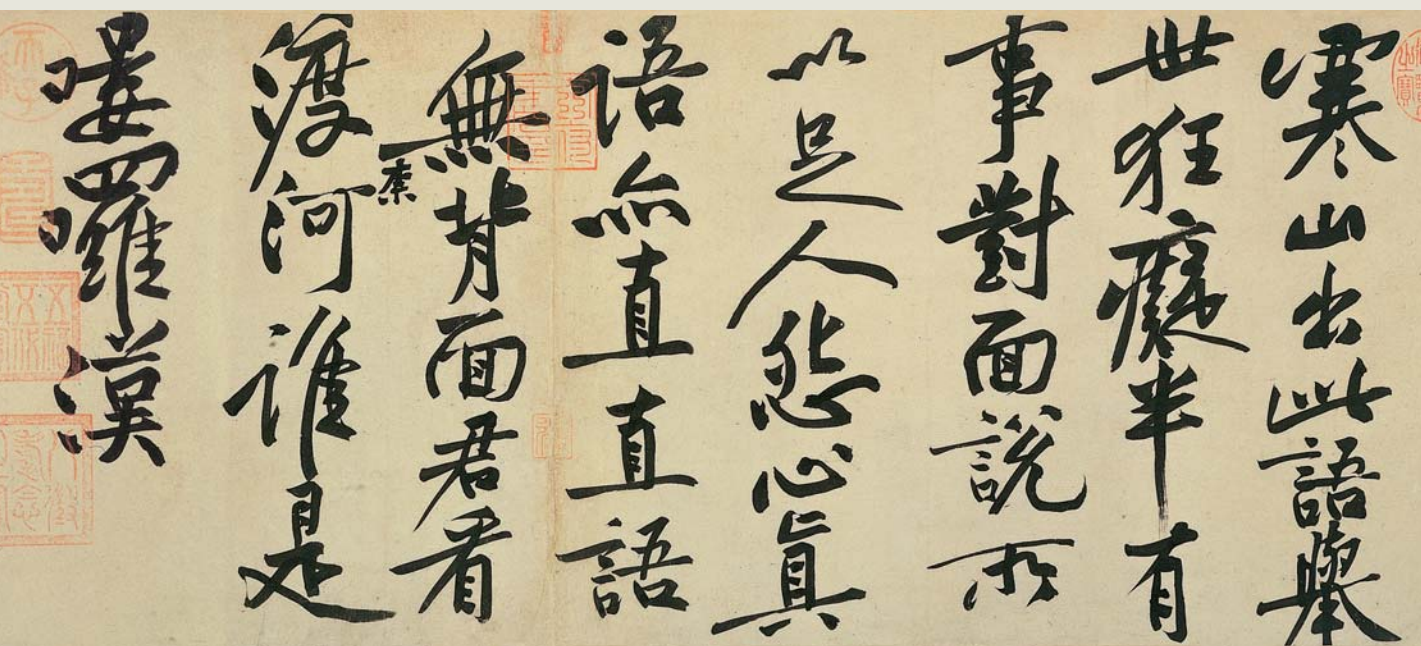 寒山出此語舉
世狂癡半有
事對面說所
以足人怨心真
語亦直直語
無背面君看
渡柰河誰是
嘍囉漢